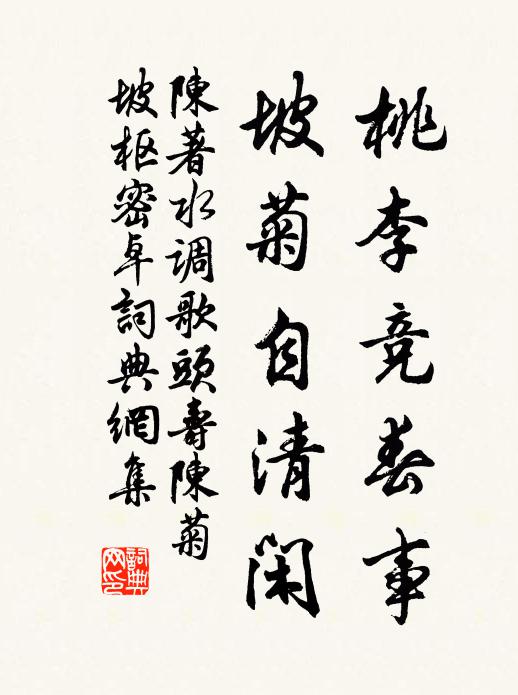 桃李竞春事
坡菊自清闲
陳著水调歌頭壽陳菊
坡枢密卓詞典網集
詞典网印